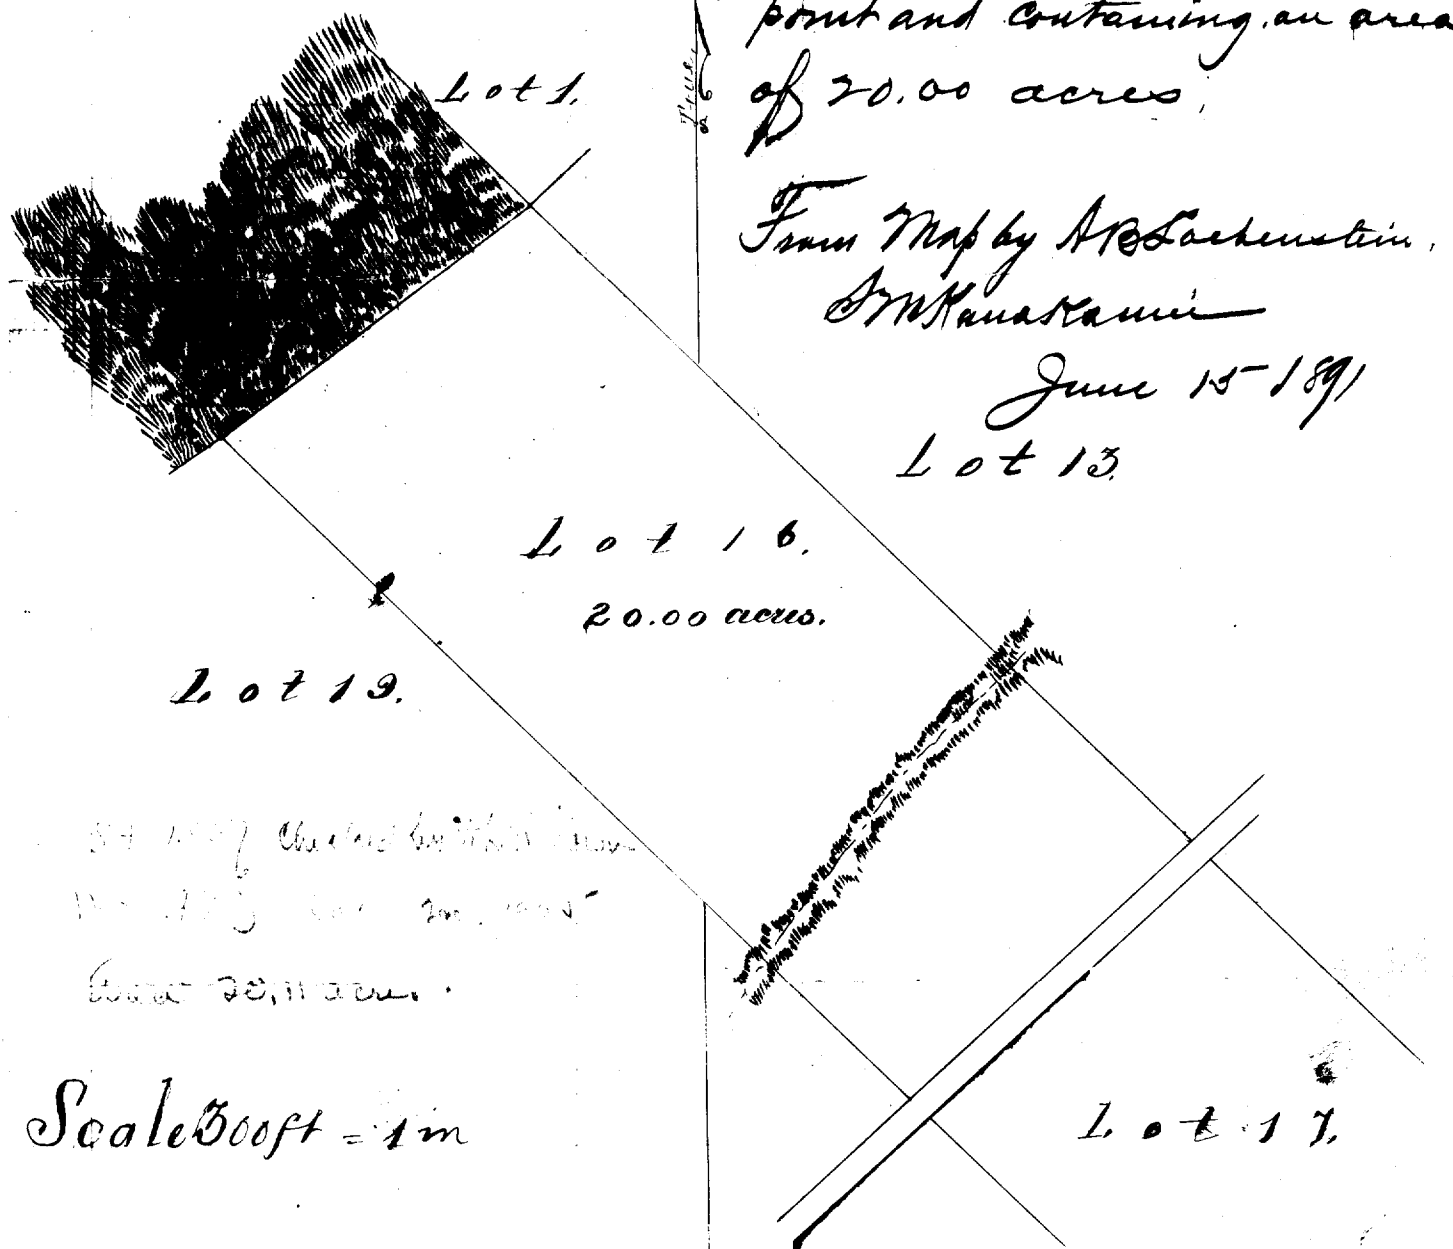 point and containing an area
of 20.00 acres,
From Map by A B Loebenstein.
S M Kanakanui
June 15 1891
Lot 1.
True
Lot 13.
Lot 16.
20.00 acres.
Lot 19.
20.11 acre.
Scale 300ft = 1 in
Lot 17.